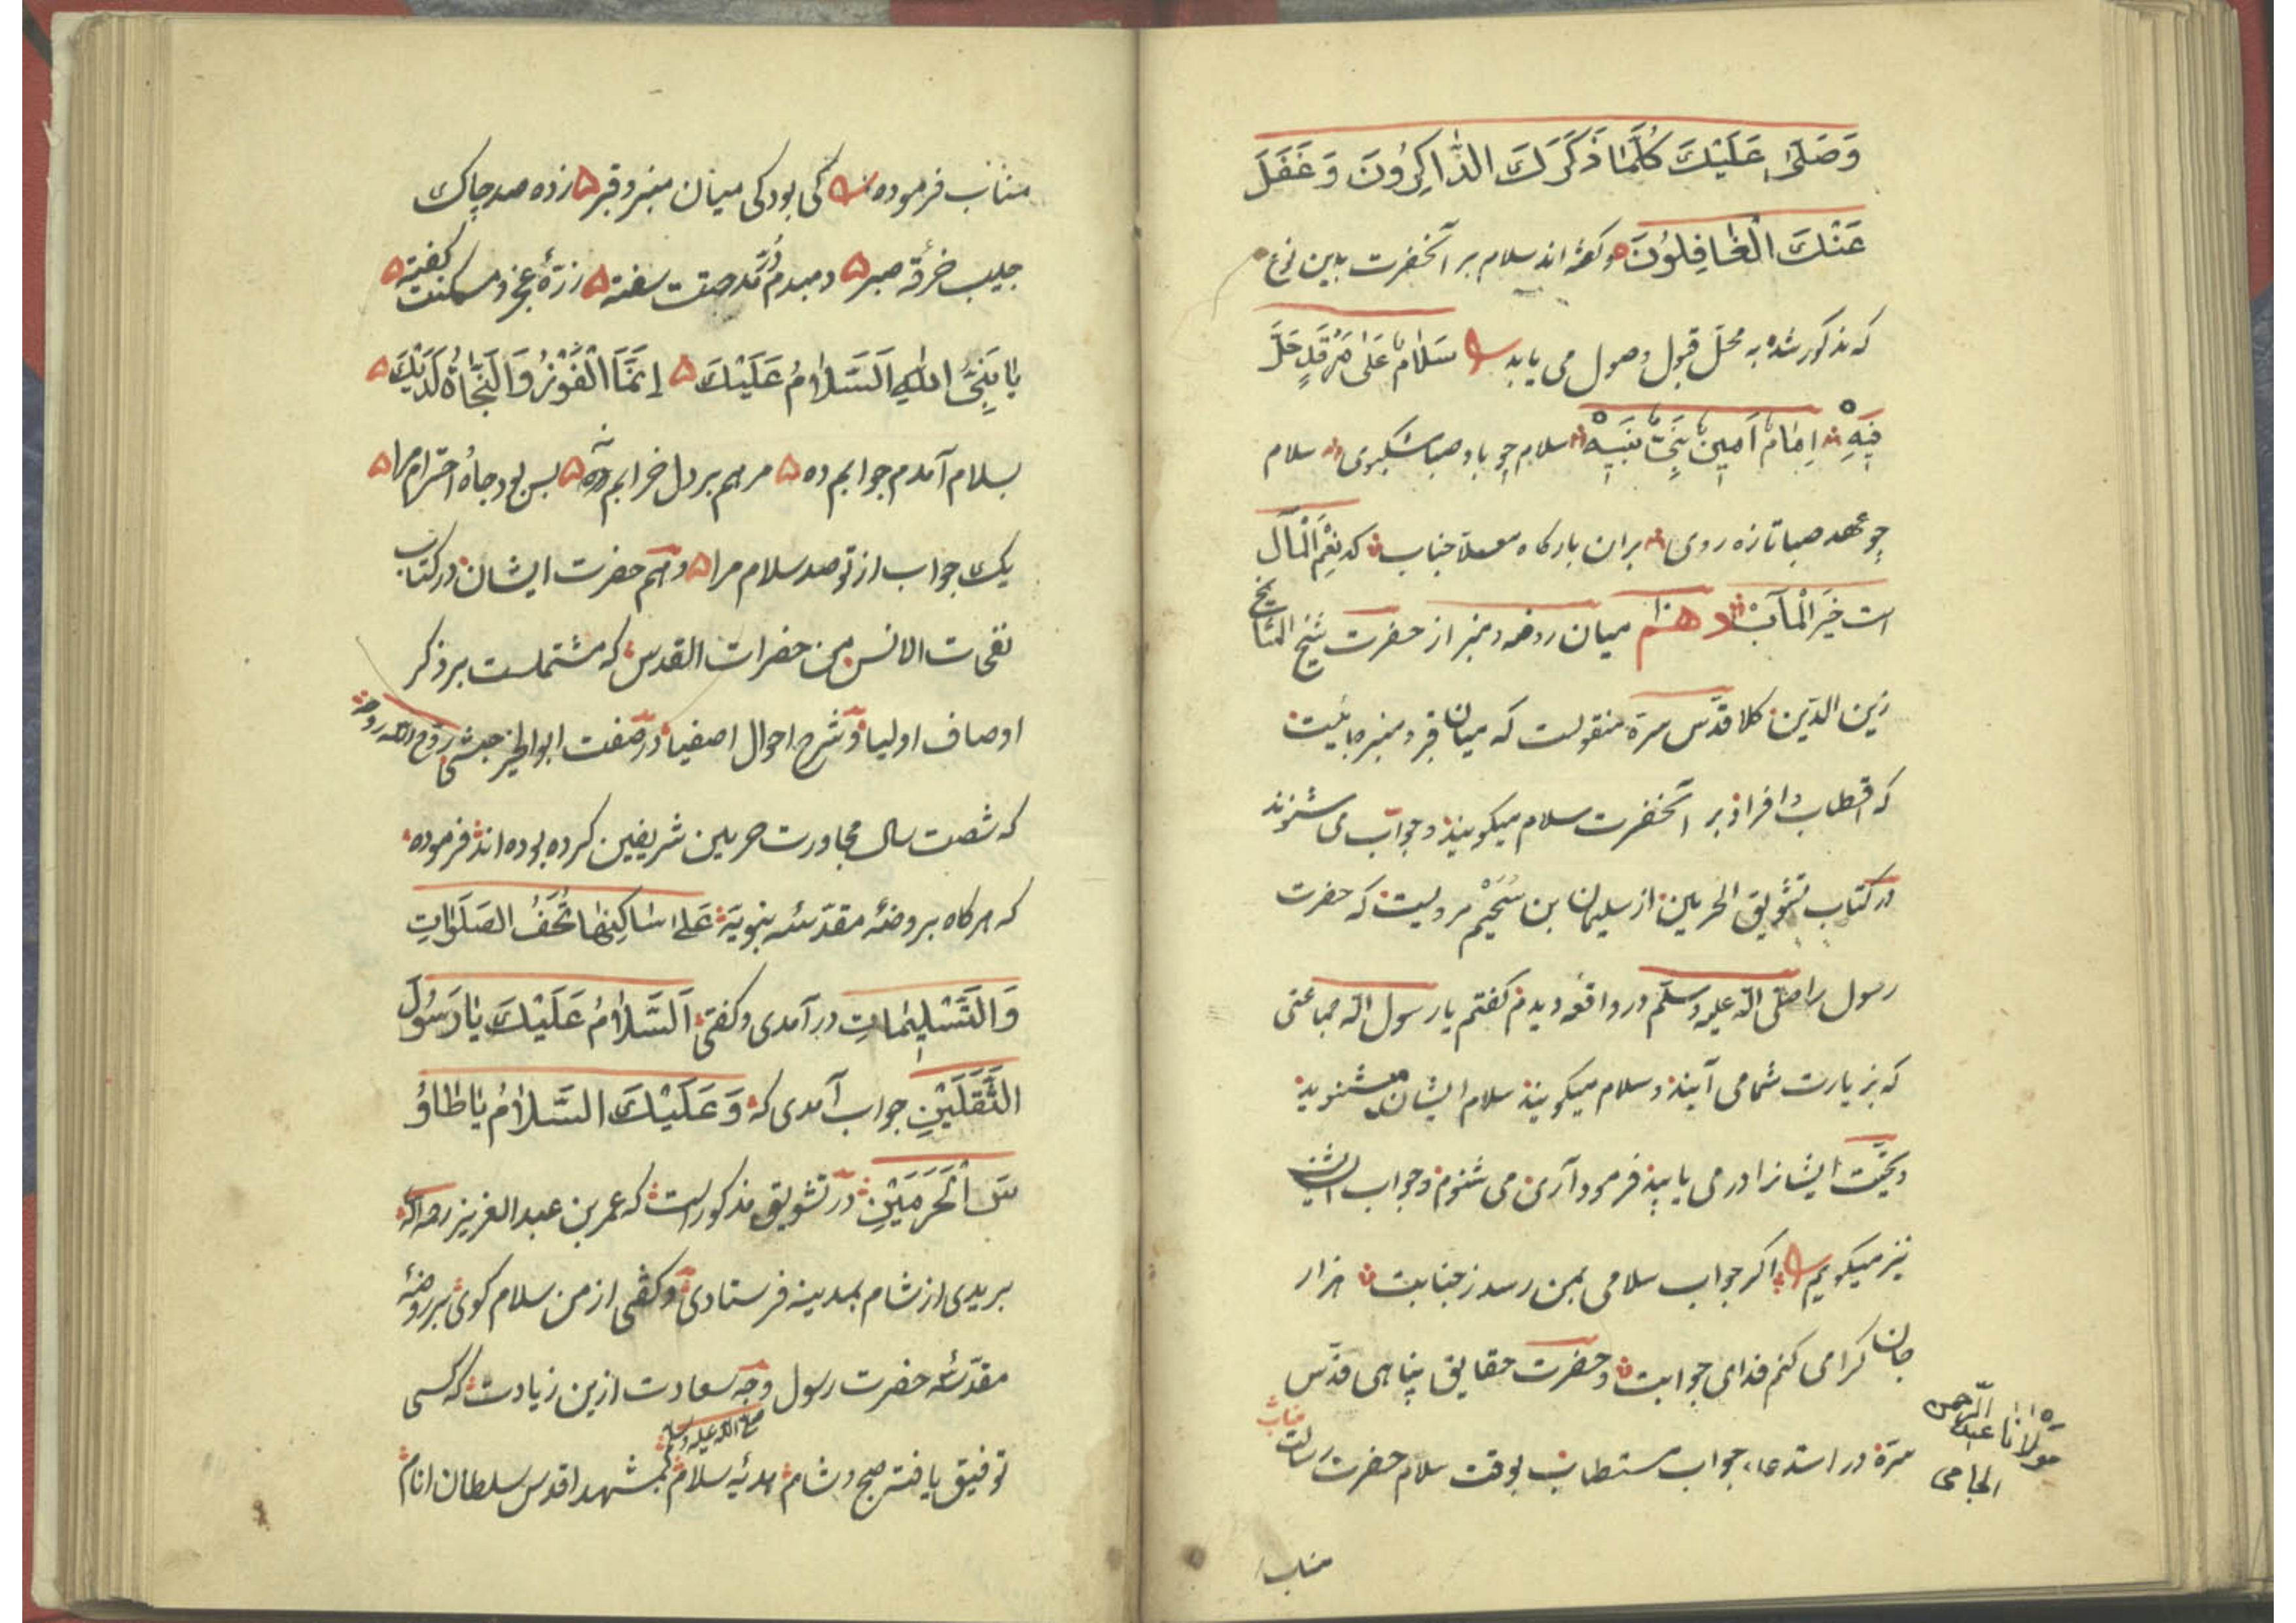 وَصَلّىٰ عَلَيْكَ كُلَّمَا ذَكَرَكَ الذَّاكِرُونَ وَغَفَلَ
عَنْكَ الْغَافِلُونَ وكفته اند سلام بر آنحضرت بدين نوع
كه مذكور شده به محل قبول وصول مى يابد سَلَامٌ عَلىٰ مَرْقَدٍ حَلَّ
فِيهِ اِمَامٌ اَمِينٌ نَبِيٌّ نَبِيهْ سلام چو باد صبا مشكبوى سلام
چو عهد صبا تازه روى بران باركاه معلا جناب كه نِعْمَ الْمَآل
است خَيرَ الْمآبْ دهم ميان روضه ومنبر از حضرت شيخ المشايخ
زين الدّين كلا قدّس سرّه منقولست كه ميان قبر ومنبر جائيست
كه اقطاب وافراد بر آنحضرت سلام ميكويند وجواب مى شنوند
در كتاب تشويق الحرمين از سليمان بن سُحَيْم مرويست كه حضرت
رسول را صلّى الله عليه وسلّم در واقعه ديدم كفتم يا رسول الله جماعتى
كه بزيارت شما مى آيند وسلام ميكويند سلام ايشان ميشنويد
وتحيّت ايشانرا در مى يابيد فرمود آرى مى شنوم وجواب ايشان
نيز ميكويم اكر جواب سلامى بمن رسد ز جنابت هزار
جان كرامى كنم فداى جوابت وحضرت حقايق پناهى قدّس
مولانا عبد الرّحمن الجامى
سرّه در استدعاء جواب مستطاب بوقت سلام حضرت رسالت جناب
مناب
مناب فرموده كى بود كى ميان منبر وقبر زده صد چاك
جليب خرقه صبر دمبدم دُرّ مدحت سفته از ره عجز ومسكنت كفته
يا نَبِيَّ اللهِ اَلسَّلَامُ عَلَيْكَ اِنَّمَا الْفَوْزُ وَالنَّجَاةُ لَدَيْكَ
بسلام آمدم جوابم ده مرهم بر دل خرابم نه بس بود جاه احترام مرا
يك جواب از تو صد سلام مرا وهم حضرت ايشان در كتاب
نفحات الانس من حضرات القدس كه مشتملست بر ذكر
اوصاف اوليا وشرح احوال اصفيا در صفت ابو الخير حبشى روّح الله روحه
كه شصت سال مجاورت حرمين شريفين كرده بوده اند فرموده
كه هركاه بروضهٔ مقدّسهٔ نبويّه عَلىٰ سَاكِنِهَا تُحَفُ الصَلَوَاتِ
وَالتَسْلِيمَاتِ درآمدى وكفتى اَلسَّلَامُ عَلَيْكَ يَا رَسُولَ
الثَّقَلَيْنِ جواب آمدى كه وَعَلَيْكَ السَّلَامُ يَا طَاوُ
سَ الْحَرَمَيْنِ در تشويق مذكور است كه عمر بن عبد العزيز رحمه الله
بريدى از شام بمدينه فرستادى وكفتى از من سلام كوى بر روضهٔ
مقدّسهٔ حضرت رسول صلى الله عليه وسلم وچه سعادت ازين زيادت كه كسى
توفيق يافته صبح وشام هديهٔ سلام بمشهد اقدس سلطان انام